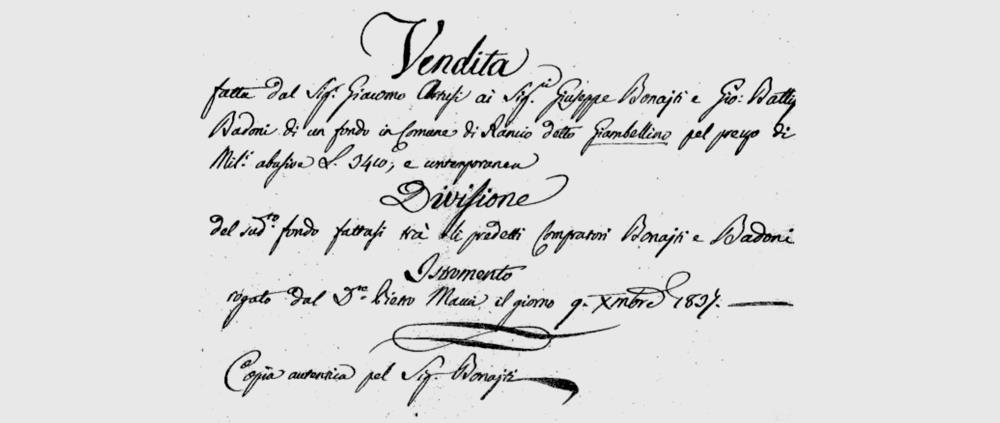 Vendita
fatta dal Sig.r Giacomo ai Sig.ri Giuseppe Bonajti e Gio: Batt.a
Badoni di un fondo in Comune di Rancio detto Giambellino pel prezzo di
Mil.i abusive L. e contemporanea
Divisione
del sud.to fondo fattasi trà li predetti Compratori Bonajti e Badoni
Istromento
rogato dal D.re Pietro il giorno 9. Xmbre
Copia autentica pel Sig.r Bonajti